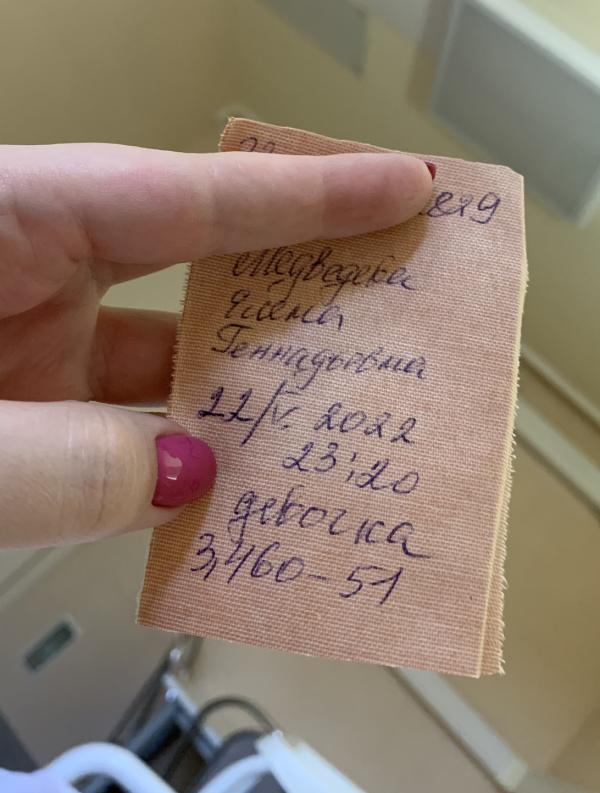 Медведева
Алёна
Геннадьевна
22/V. 2022
23:20
девочка
3,460-51